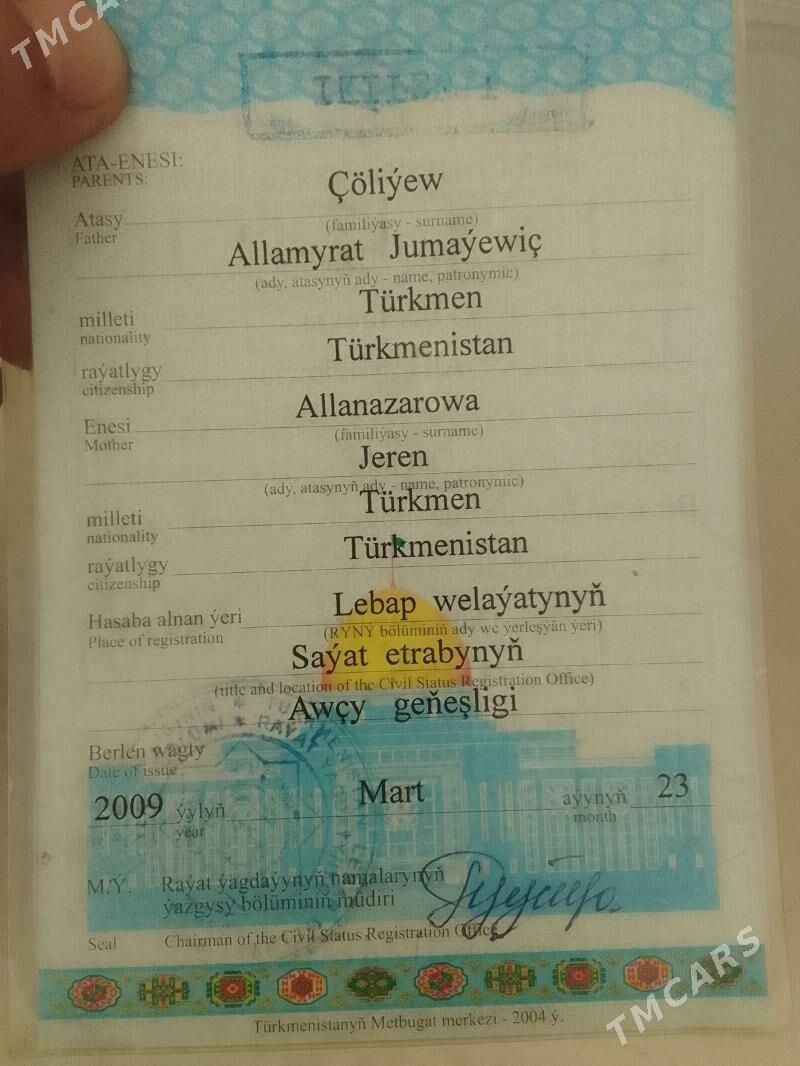 TMCARS
ATA-ENESI:
PARENTS:
Çöliýew
Atasy
Father
(familiýasy - surname)
Allamyrat Jumaýewiç
(ady, atasynyň ady - name, patronymic)
Türkmen
milleti
nationality
Türkmenistan
raýatlygy
citizenship
Allanazarowa
Enesi
Mother
(familiýasy - surname)
Jeren
(ady, atasynyň ady - name, patronymic)
Türkmen
milleti
nationality
Türkmenistan
raýatlygy
citizenship
Hasaba alnan ýeri
Place of registration
Lebap welaýatynyň
(RÝNÝ bölüminiň ady we ýerleşýän ýeri)
Saýat etrabynyň
(title and location of the Civil Status Registration Office)
Awçy geňeşligi
Berlen wagty
Date of issue
2009 ýylyň Mart aýynyň 23
year month
M.Ý. Raýat ýagdaýynyň namalarynyň
ýazgysy bölüminiň müdiri
Seal Chairman of the Civil Status Registration Office
Türkmenistanyň Metbugat merkezi - 2004 ý.
TMCARS